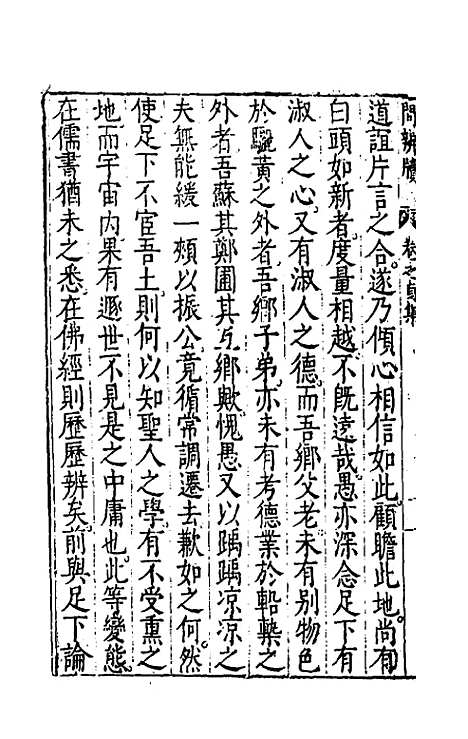 問辨牘 卷之貞集
道誼片言之合。遂乃傾心相信如此。顧瞻此地。尚有
白頭如新者。度量相越。不旣遠哉。愚亦深念足下有
淑人之心。又有淑人之德。而吾鄉父老。未有别物色
於驪黃之外者。吾鄉子弟。亦未有考德業於鉛槧之
外者。吾蘇其鄭圃其互鄉歟。愧愚又以踽踽凉凉之
夫。無能緩一頰以振公。竟循常調遷去。歉如之何。然
使足下不宦吾土。則何以知聖人之學。有不受熏之
地。而宇宙内果有遯世不見是之中庸也。此等變態。
在儒書猶未之悉。在佛經則歷歷辨矣。前與足下論